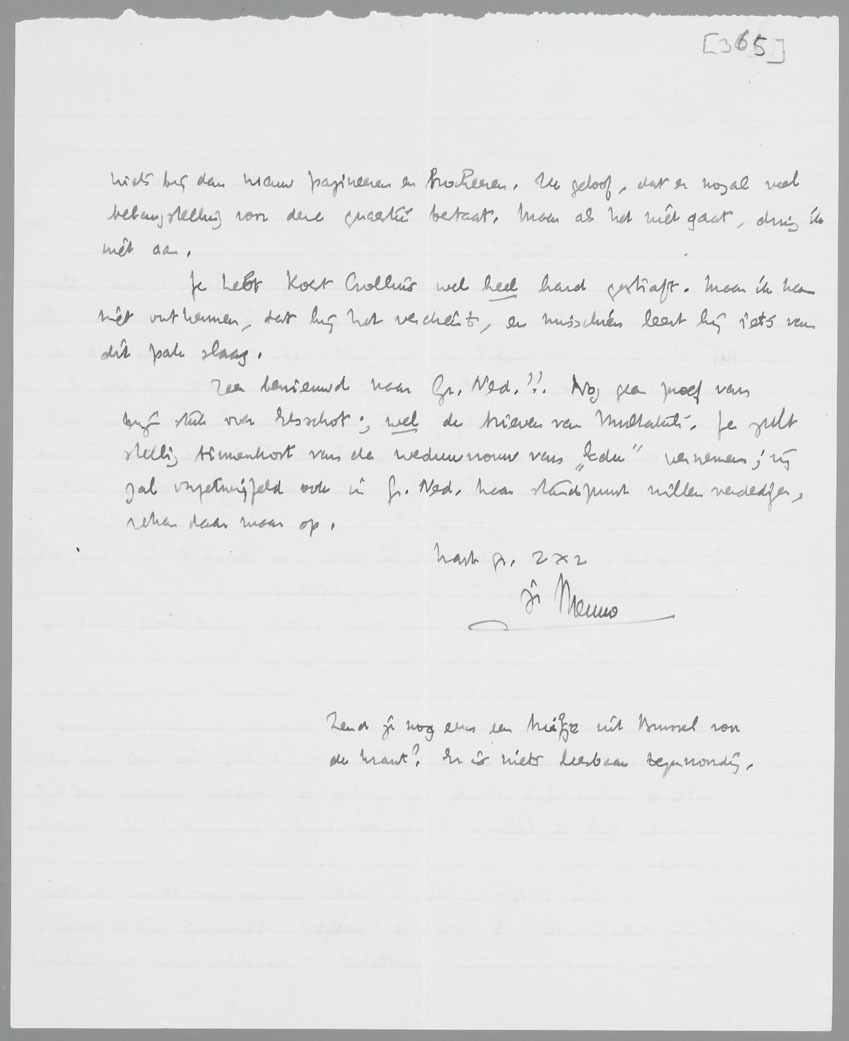 [365]
niets bij dan nieuw pagineeren en brocheeren. Ik geloof, dat er nogal veel
belangstelling voor deze quaestie bestaat. Maar als het niet gaat, dring ik
niet aan.
Je hebt Kost Crollius wel heel hard gestraft. Maar ik kan
niet ontkennen, dat hij het verdient, en misschien leert hij iets van
dit pak slaag.
Zeer benieuwd naar Gr. Ned.!!. Nog geen proef van
mijn stuk over Elsschot; wel de brieven van Multatuli. Je zult
stellig van de weduwvrouw van „Edu" vernemen; zij
zal ongetwijfeld ook in Gr. Ned. haar standpunt willen verdedigen,
reken daar maar op.
hart. gr. 2 x 2
je Menno
Zend je nog eens een briefje uit Brussel voor
de krant? Er is niets leesbaar tegenwoordig.